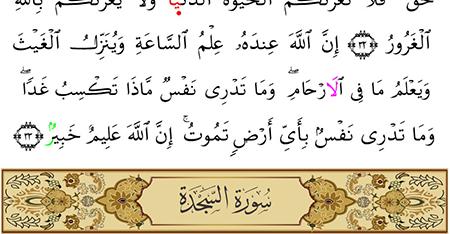 حَقٌّ فَلَا تَغُرَّنَّكُمُ الْحَيَوٰةُ الدُّنْيَا وَلَا يَغُرَّنَّكُم بِاللَّهِ
اِلْغَرُورُ ۝٣٢ إِنَّ اَللَّهَ عِندَهُۥ عِلْمُ السَّاعَةِ وَيُنَزِّلُ الْغَيْثَ
وَيَعْلَمُ مَا فِي اِلَارْحَامِ ۖ وَمَا تَدْرِى نَفْسٌ مَّاذَا تَكْسِبُ غَدًا ۖ
وَمَا تَدْرِى نَفْسُۢ بِأَيِّ أَرْضٍ تَمُوتُ ۚ إِنَّ اَللَّهَ عَلِيمٌ خَبِيرٌ ۝٣٣
سُورَةُ السَّجْدَةِ